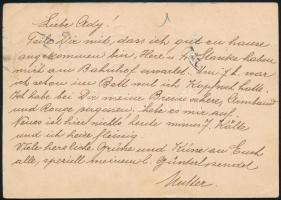 Liebe Ady!
Teile Dir mit, dass ich gut zu hause
angekommen bin, Herr u. Fr. haben
mich am Bahnhof erwartet. Um 7 h. war
ich schon im Bett mit ich Kopfweh hatte.
Ich habe bei Dir meine Brause, Armband
und vergessen. Hebe es mir auf.
Neues ist hier nichts heute minus 7. Kälte
und ich heize fleissig.
Viele herzliche Grüsse und Küsse an Euch
alle, speziell meinem l. Günterl sendet
Mutter